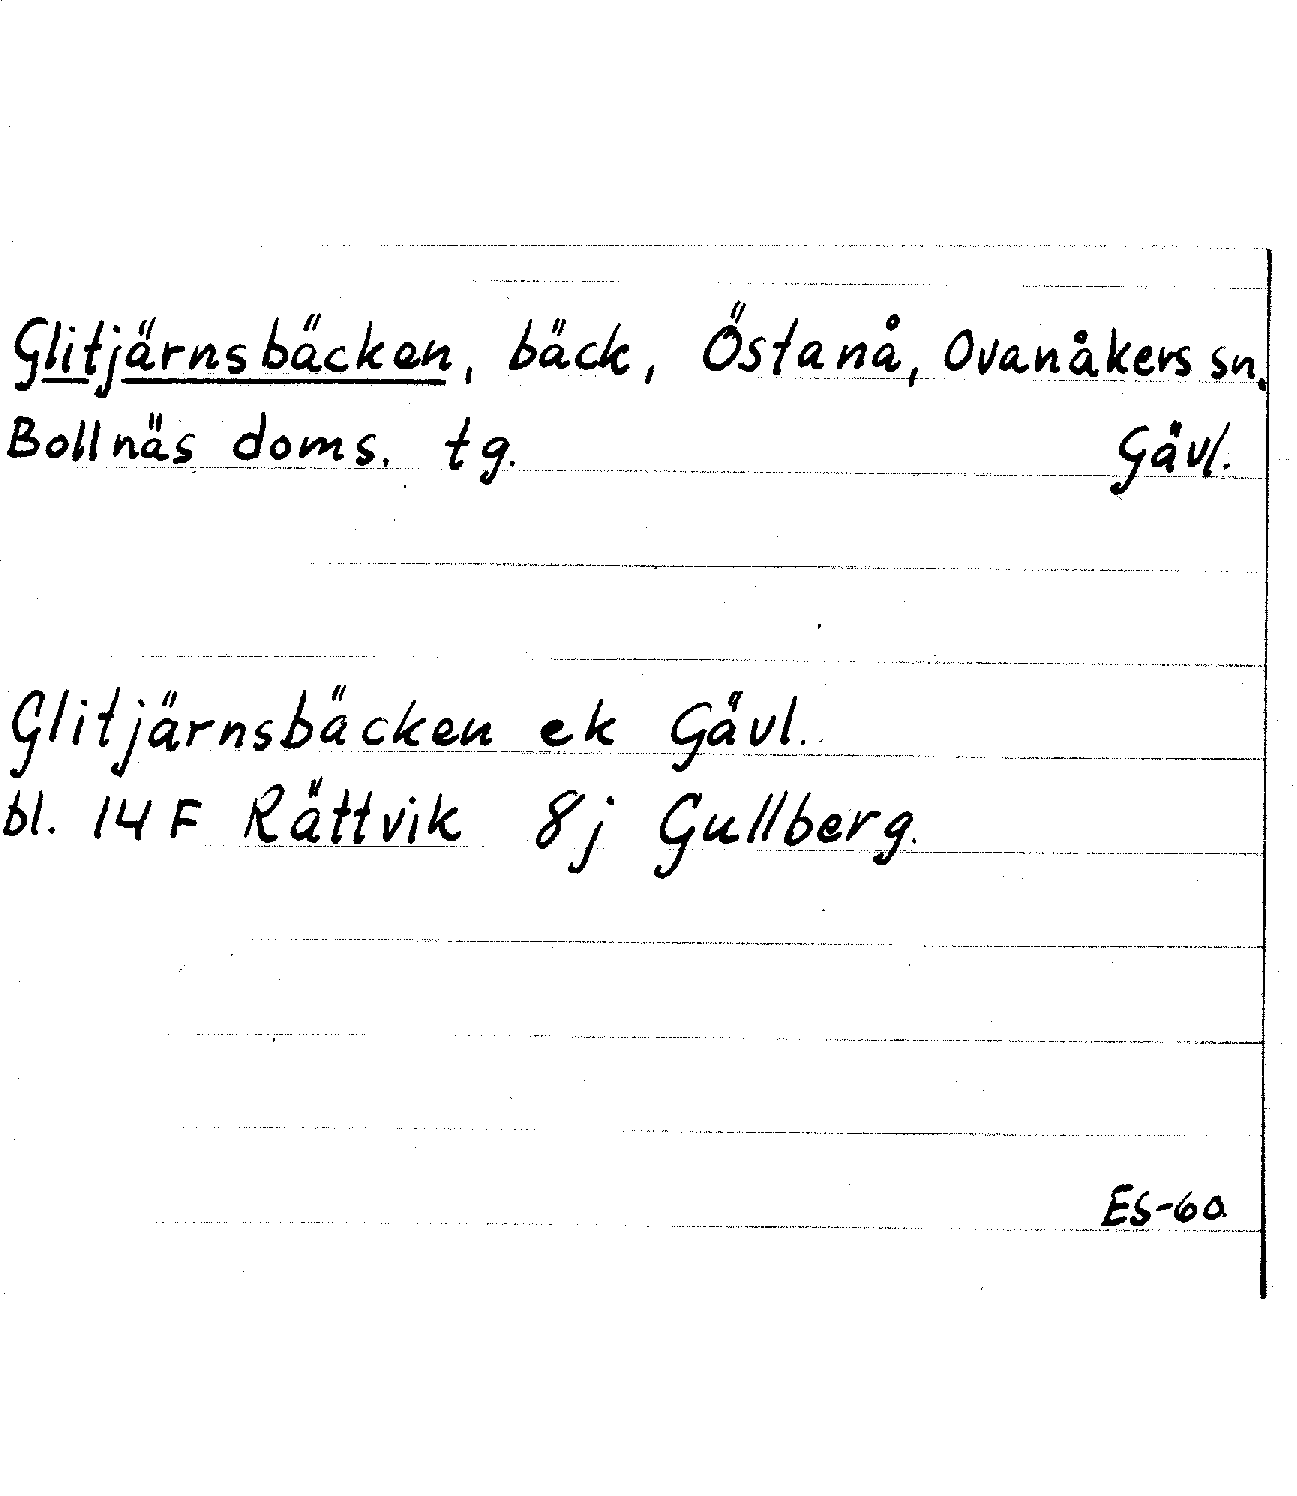 Glitjärnsbäcken, bäck, Östanå, Ovanåkers sn.
Bollnäs doms. tg. Gävl.
Glitjärnsbäcken ek Gävl.
bl. 14 F Rättvik 8j Gullberg.
ES-60